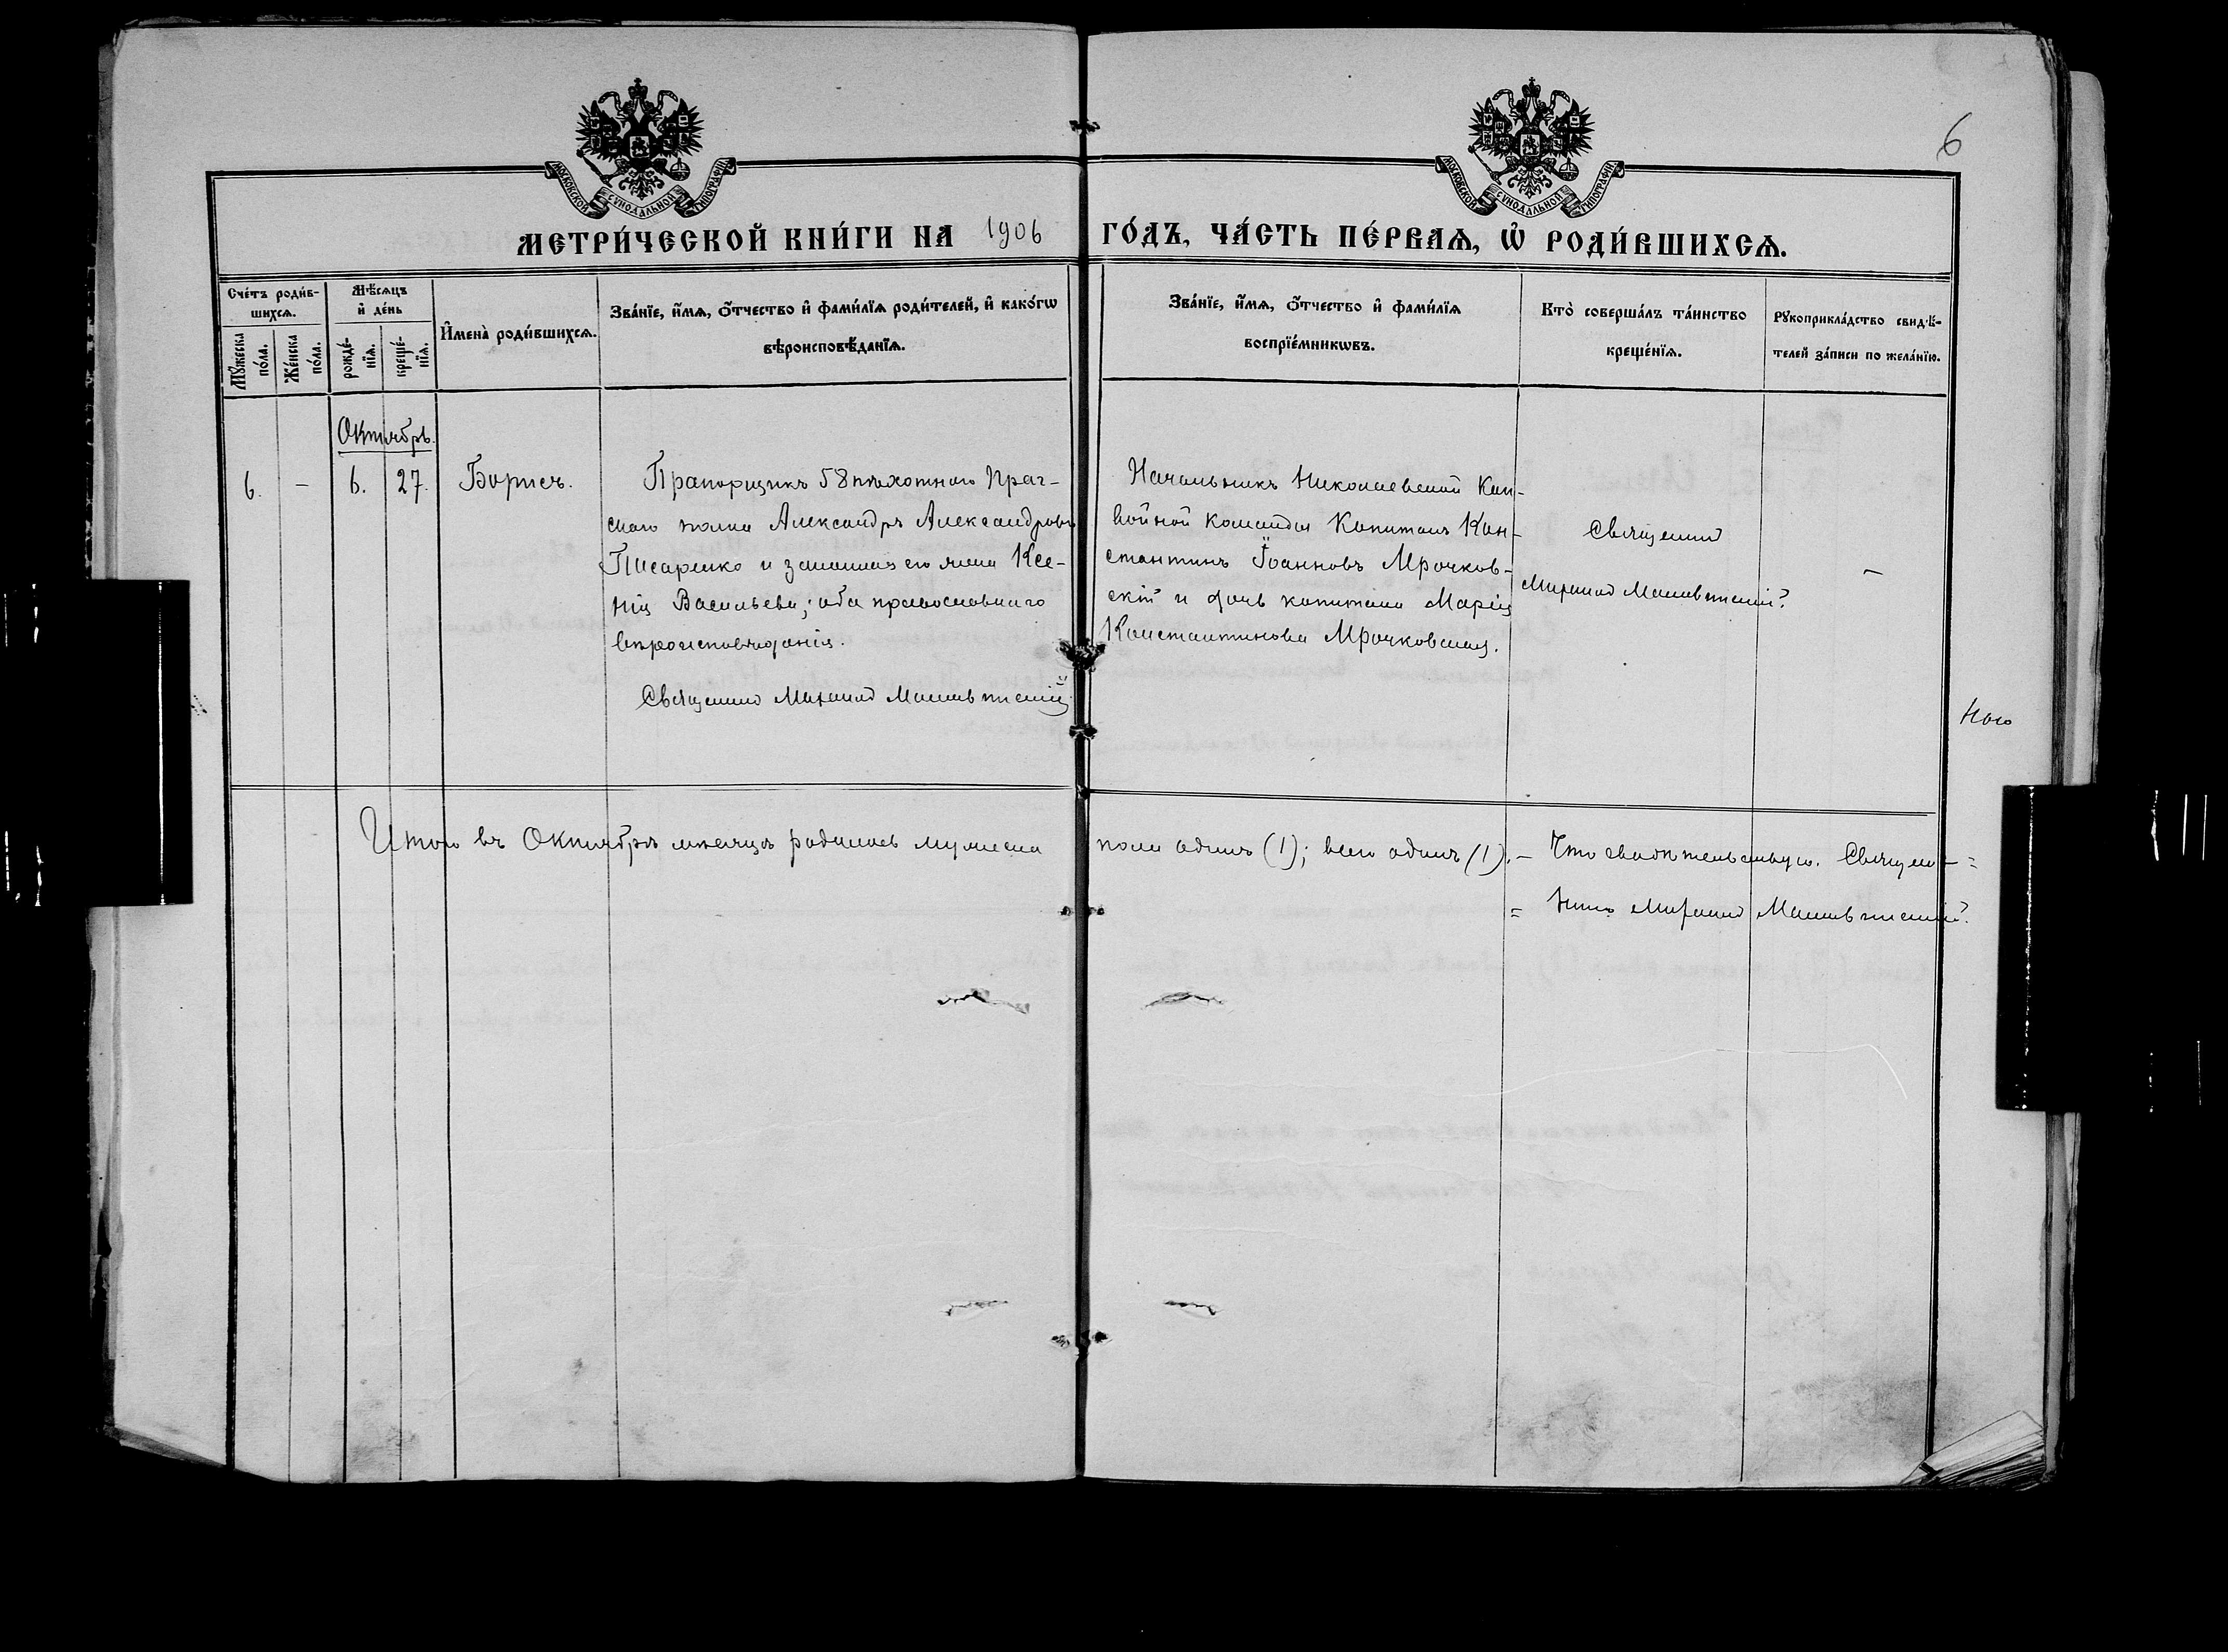 6
МОСКОВСКОЙ СѴНОДАЛЬНОЙ ТИПОГРАФІИ
МОСКОВСКОЙ СѴНОДАЛЬНОЙ ТИПОГРАФІИ
МЕТРИ́ЧЕСКОЙ КНИ́ГИ НА 1906 ГО́ДЪ, ЧА́СТЬ ПЕ́РВАѦ, Ѡ҆ РОДИ́ВШИХСѦ.
Сче́тъ роди́в-
шихсѧ.
Мꙋ́жеска
по́ла.
Же́нска
по́ла.
Мѣ́сѧцъ
и҆ де́нь
рожде́-
нїѧ.
креще́-
нїѧ.
И҆мена̀ роди́вшихсѧ.
Зва́нїе, и҆́мѧ, ѻ҆́тчество и҆ фами́лїѧ роди́телей, и҆ како́гѡ
вѣроисповѣ́данїѧ.
Зва́нїе, и҆́мѧ, ѻ҆́тчество и҆ фами́лїѧ
воспрїе́мникѡвъ.
Кто̀ соверша́лъ та́инство
креще́нїѧ.
Рꙋкоприкла́дство свидѣ́-
телей за́писи по жела́нїю.
Октябрь.
6. - 6. 27. Борисъ.
Прапорщикъ 58 пѣхотнаго Праг-
скаго полка Александръ Александровъ
Писаренко и законная его жена Ксе-
нія Васильева; оба православнаго
вѣроисповѣданія.
Священникъ Михаилъ
Начальникъ Николаевской Кон-
войной команды Капитанъ Кон-
стантинъ Іоанновъ Мрочков-
скій и дочь капитана Марія
Константинова Мрочковская.
Священникъ
Михаилъ
-
Итого въ Октябрѣ мѣсяцѣ родилось мужеска пола одинъ (1); всего одинъ (1). - Что свидѣтельствую. Священ- =
= никъ Михаилъ